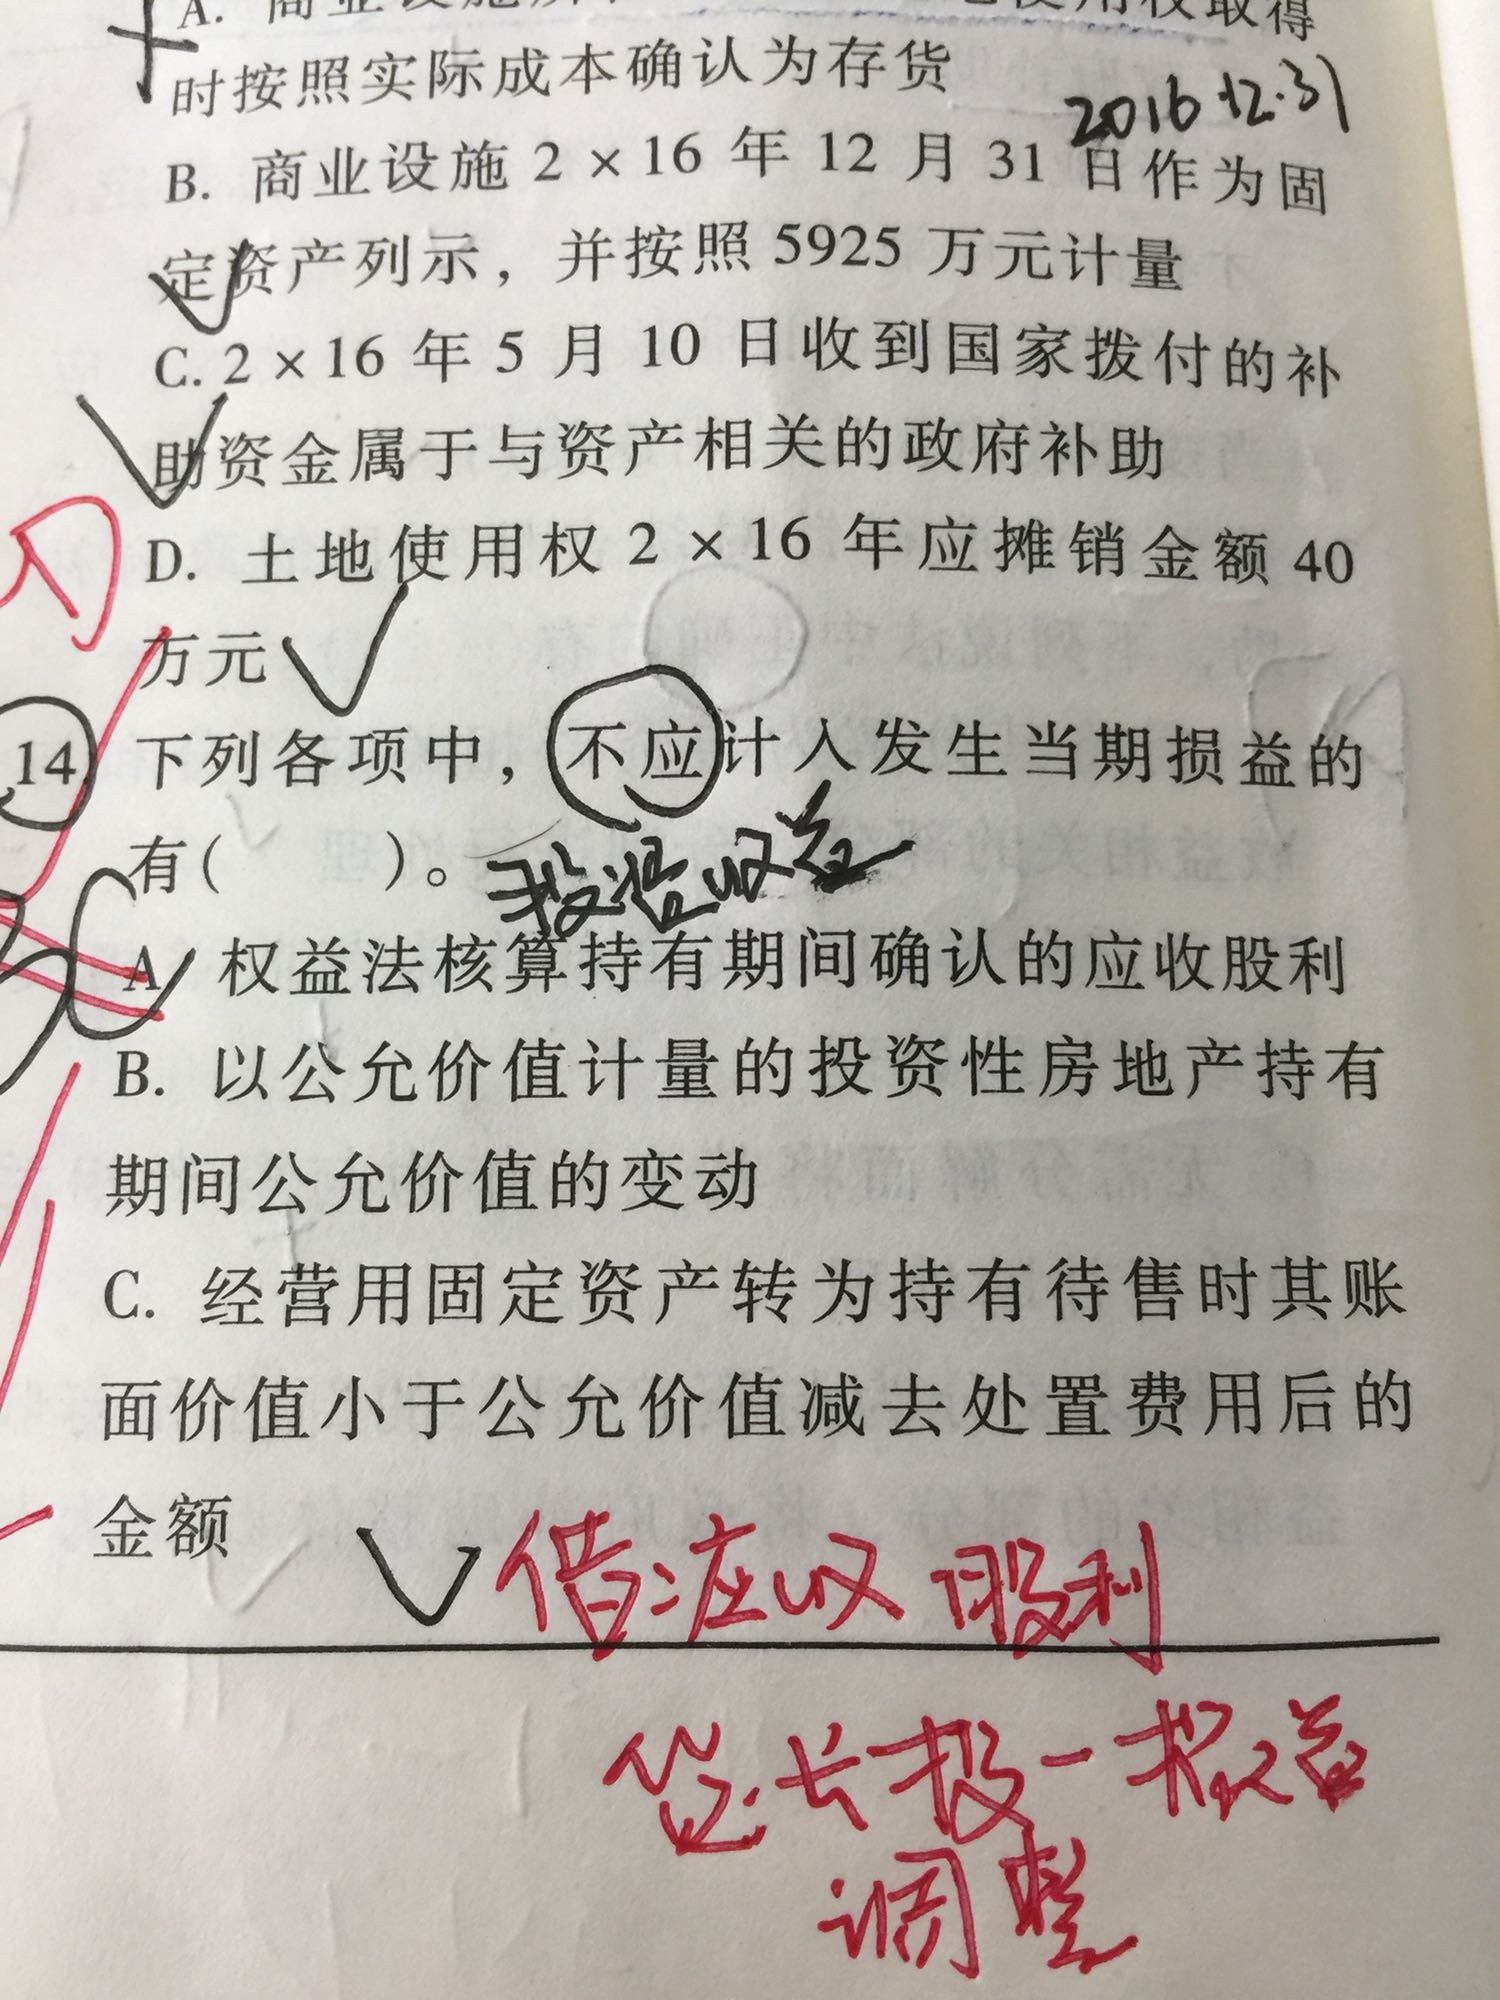 A. 商业设施所
使用权取得
时按照实际成本确认为存货
2016.12.31
B. 商业设施 2 × 16 年 12 月 31 日作为固
定资产列示，并按照 5925 万元计量
C. 2 × 16 年 5 月 10 日收到国家拨付的补
助资金属于与资产相关的政府补助
D. 土地使用权 2 × 16 年应摊销金额 40
万元
14 下列各项中，不应计入发生当期损益的
有(　　)。
投资收益
A 权益法核算持有期间确认的应收股利
B. 以公允价值计量的投资性房地产持有
期间公允价值的变动
C. 经营用固定资产转为持有待售时其账
面价值小于公允价值减去处置费用后的
金额
借:应收股利
贷:长投一损益
调整